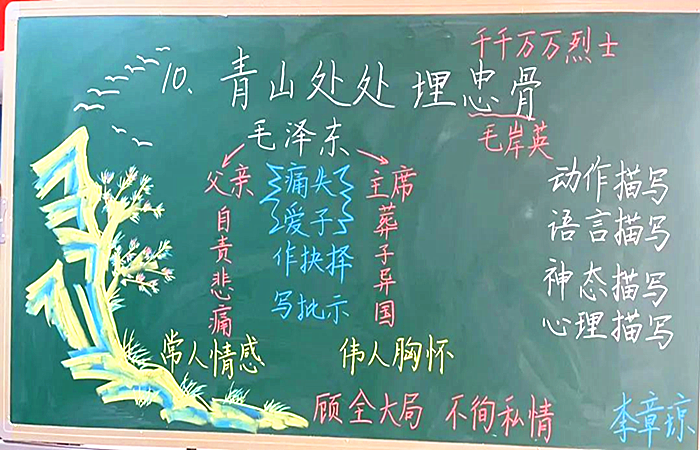 千千万万烈士
10、青山处处埋忠骨
毛岸英
毛泽东
父亲
自责悲痛
痛失
爱子
作抉择
写批示
主席
葬子异国
动作描写
语言描写
神态描写
心理描写
常人情感
伟人胸怀
顾全大局 不徇私情
李章琼